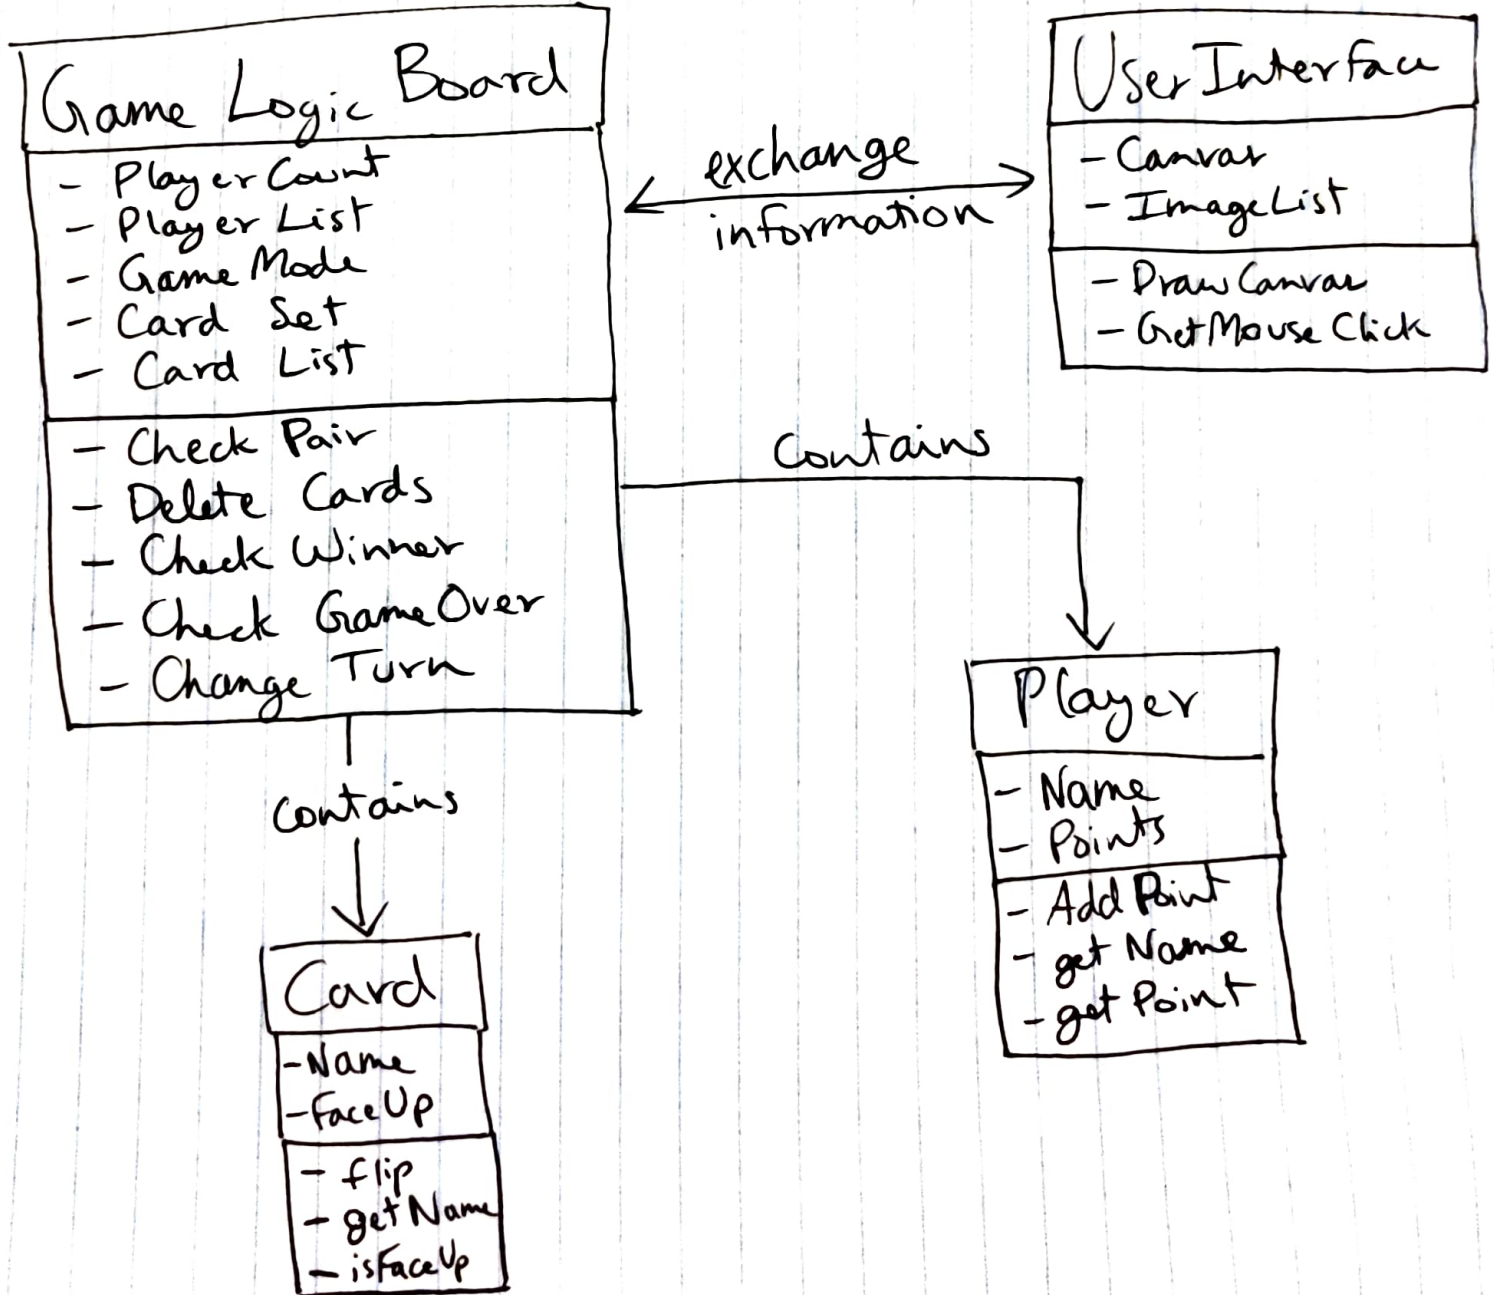 Game Logic Board
- Player Count
- Player List
- Game Mode
- Card Set
- Card List
- Check Pair
- Delete Cards
- Check Winner
- Check GameOver
- Change Turn
exchange
information
UserInterface
- Canvas
- ImageList
- DrawCanvas
- GetMouseClick
contains
Player
- Name
- Points
- Add Point
- get Name
- get Point
contains
Card
- Name
- FaceUp
- flip
- getName
- isFaceUp